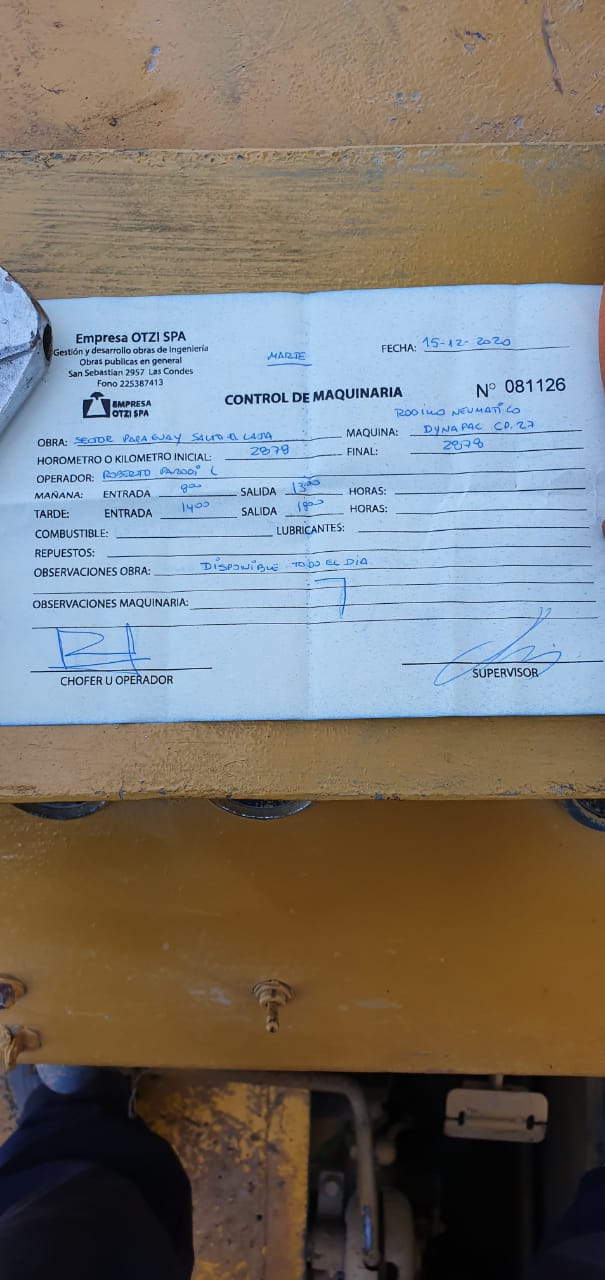 Empresa OTZI SPA
Gestión y desarrollo obras de Ingeniería
Obras publicas en general
San Sebastian 2957 Las Condes
Fono 225387413
EMPRESA
OTZI SPA
MARTE
FECHA: 15-12-2020
CONTROL DE MAQUINARIA
Nº 081126
RODILLO NEUMATICO
OBRA: SECTOR PARAGUAY SALTO EL LAJA
MAQUINA: DYNAPAC CP.27
HOROMETRO O KILOMETRO INICIAL: 2878
FINAL: 2878
OPERADOR: ROBERTO L
MAÑANA: ENTRADA 8:00 SALIDA 13:00 HORAS:
TARDE: ENTRADA 14:00 SALIDA 18:00 HORAS:
COMBUSTIBLE: LUBRICANTES:
REPUESTOS:
OBSERVACIONES OBRA: DISPONIBLE TODO EL DIA
OBSERVACIONES MAQUINARIA:
CHOFER U OPERADOR
SUPERVISOR